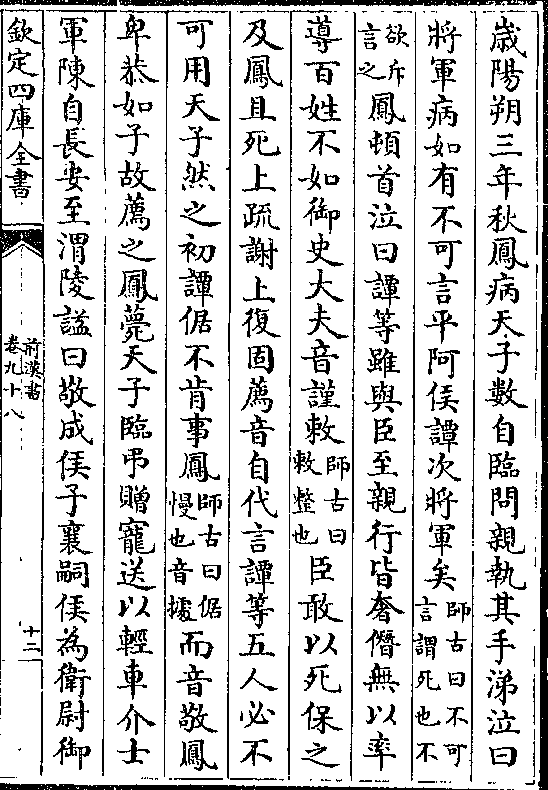 歲陽朔三年秋鳳病天子數自臨問親執其手涕泣曰
將軍病如有不可言平阿侯譚次將軍矣師古曰不可言謂死也不
欲斥言之鳳頓首泣曰譚等雖與臣至親行皆奢僭無以率
導百姓不如御史大夫音謹敕師古曰敕整也臣敢以死保之
及鳳且死上疏謝上復固薦音自代言譚等五人必不
可用天子然之初譚倨不肯事鳳師古曰倨慢也音據而音敬鳳
卑恭如子故薦之鳳薨天子臨弔贈寵送以輕車介士
軍陳自長安至渭陵諡曰敬成侯子襄嗣侯為衛尉御
欽定四庫全書
前漢書
卷九十八
十二